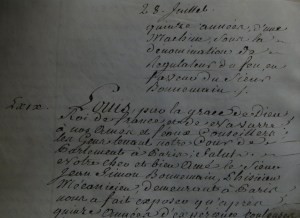 28. Juillet
quinze années, d'une
Machine, sous la
dénomination de
Régulateur de feu, en
faveur du Sieur
Bonnemain./.
Louis par la grace de Dieu
Roi de france et de Navarre
à nos Amés et feaux Conseillers
les Gens tenant notre Cour de
Parlement à Paris; Salut
notre cher et bien Amé le Sieur
Jean Simon Bonnemain, Phisicien
Mécanicien, demeurant à Paris
nous a fait exposer qu'après
quinze Années d'expériences